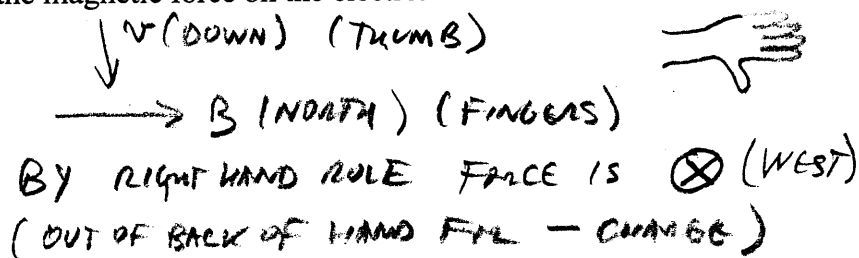 the magnetic force on the electron
v (DOWN) (THUMB)
B (NORTH) (FINGERS)
BY RIGHT HAND RULE FORCE IS ⊗ (WEST)
(OUT OF BACK OF HAND FOR - CHARGE)